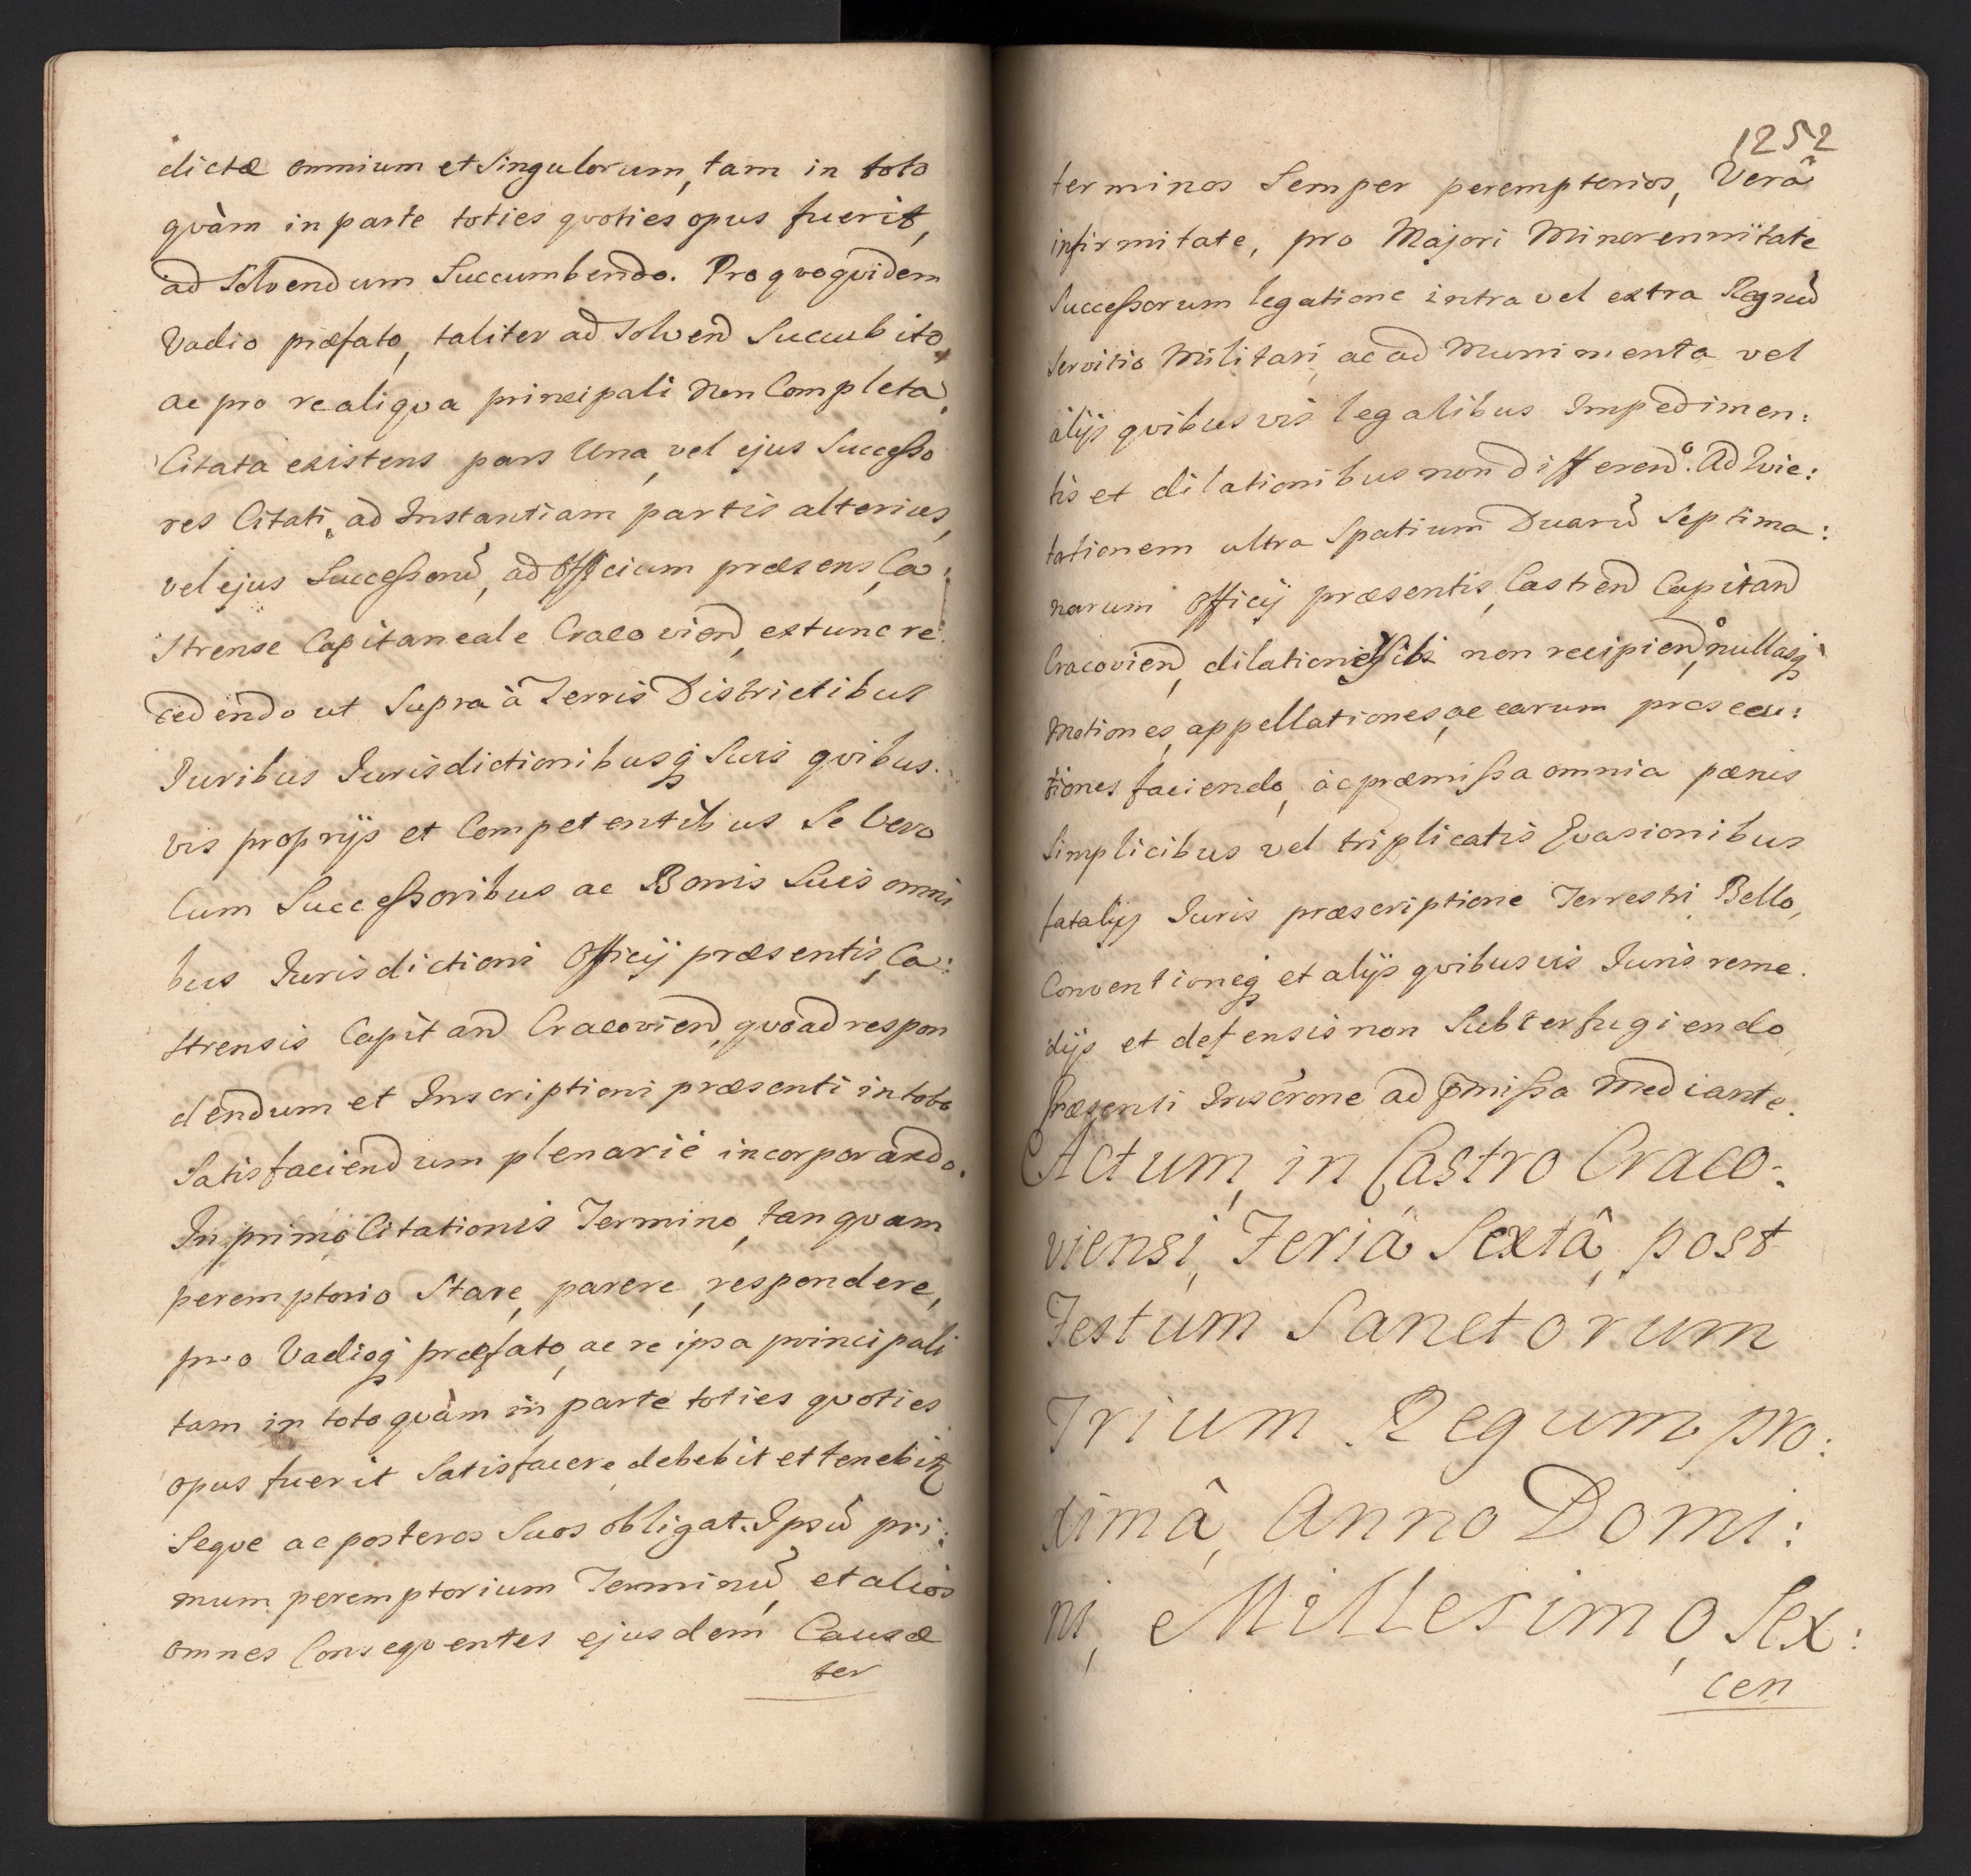 dictæ omnium et Singulorum, tam in toto
qvàm in parte toties qvoties opus fuerit,
ad Solvendum Succumbendo. Pro qvoqvidem
Vadio præfato, taliter ad Solvend Succubito,
ac pro re aliqva principali non Completa,
Citata existens pars Una, vel ejus Successo
res Citati, ad Instantiam partis alterius,
vel ejus Successorũ, ad Officium præsens, Ca:
strense Capitaneale Cracoviend, extunc re:
cedendo ut Supra à Terris Districtibus
Juribus Jurisdictionibusq̃ Suis qvibus.
vis proprijs et Competentibus Se Vero
Cum Successoribus ac Bonis Suis omni
bus Jurisdictioni Officij præsentis, Ca:
strensis Capitand Cracoviend, qvoad respon
dendum et Inscriptioni præsenti in toto
Satisfaciendum plenarié incorporando.
In primo Citationis Termino, tanqvam
peremptorio Stare, parere, respondere,
pro Vadioq̃ præfato, ac re ipsa principali
tam in toto qvàm in parte toties qvoties
opus fuerit Satisfacere, debebit et tenebit
Seqve ac posteros Suos obligat. Ipsũ pri:
mum peremptorium Terminũ, et alios
omnes Conseqventes ejusdem Causæ
ter
1252
terminos Semper peremptorios, Verâ
infirmitate, pro Majori Minorennitate
Successorum legatione intra vel extra Regnũ
Servitio Militari, ac ad Munimenta vel
alijs qvibusvis legalibus Impedimen:
tis et dilationibus non differendo. Ad Qvie:
tationem ultra Spatium Duarũ Septima:
narum Officij præsentis, Castrend Capitand
Cracoviend, dilationes Sibi non recipiendo, nullasq̃
Motiones, appellationes, ac earum prosecu:
tiones faciendo, ac præmissa omnia pænis
Simplicibus vel triplicatis Evasionibus
fatalijs Juris præscriptione Terrestri, Bello,
Conventioneq̃ et alijs qvibusvis Juris reme.
dijs et defensis non Subterfugiendo,
Præsenti Inscrone ad p̃missa Mediante.
Actum, in Castro Craco:
viensi, Feriâ Sextâ, post
Festum Sanctorum
Trium Regum, pro:
ximâ, Anno Domi:
ni, Millesimo, Sex:
cen